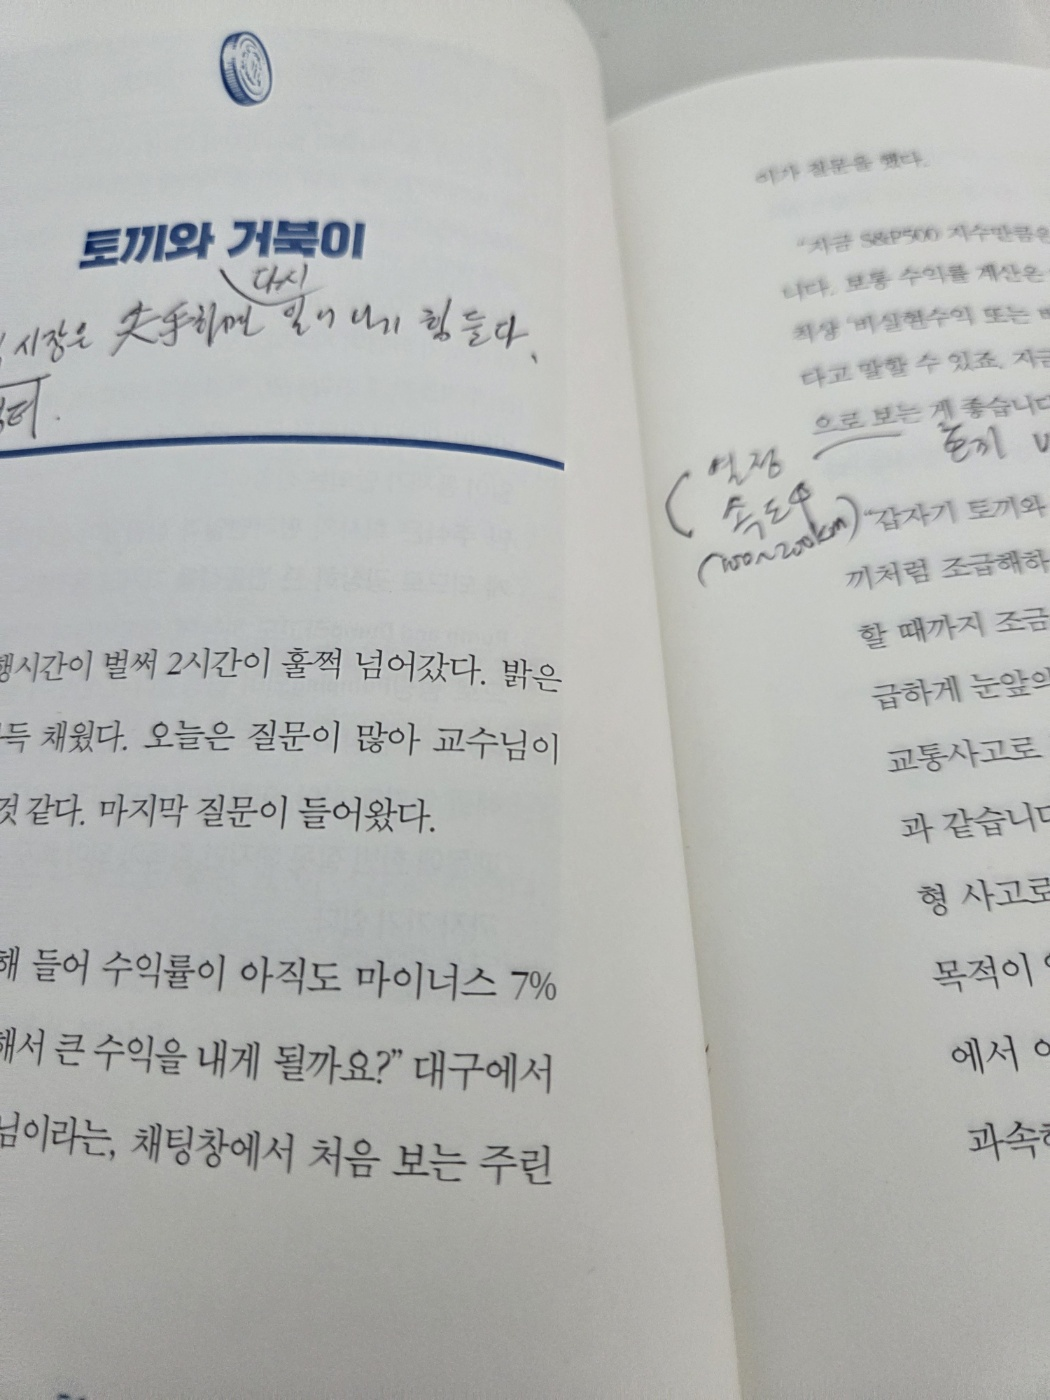 토끼와 거북이
다시
시장은 失手하면 일어나기 힘들다.
행시간이 벌써 2시간이 훌쩍 넘어갔다. 밝은
득 채웠다. 오늘은 질문이 많아 교수님이
것 같다. 마지막 질문이 들어왔다.
해 들어 수익률이 아직도 마이너스 7%
해서 큰 수익을 내게 될까요?” 대구에서
님이라는, 채팅창에서 처음 보는 주린
이가 질문을 했다.
“지금 S&P500 지수만큼은
니다. 보통 수익률 계산은
최상 ‘비실현수익 또는 비
타고 말할 수 있죠. 지금
으로 보는 게 좋습니다
토끼 v
(일정
속도↑
(100~200km)
“갑자기 토끼와
끼처럼 조급해하
할 때까지 조금
급하게 눈앞의
교통사고로
과 같습니다
형 사고로
목적이
에서
과속하